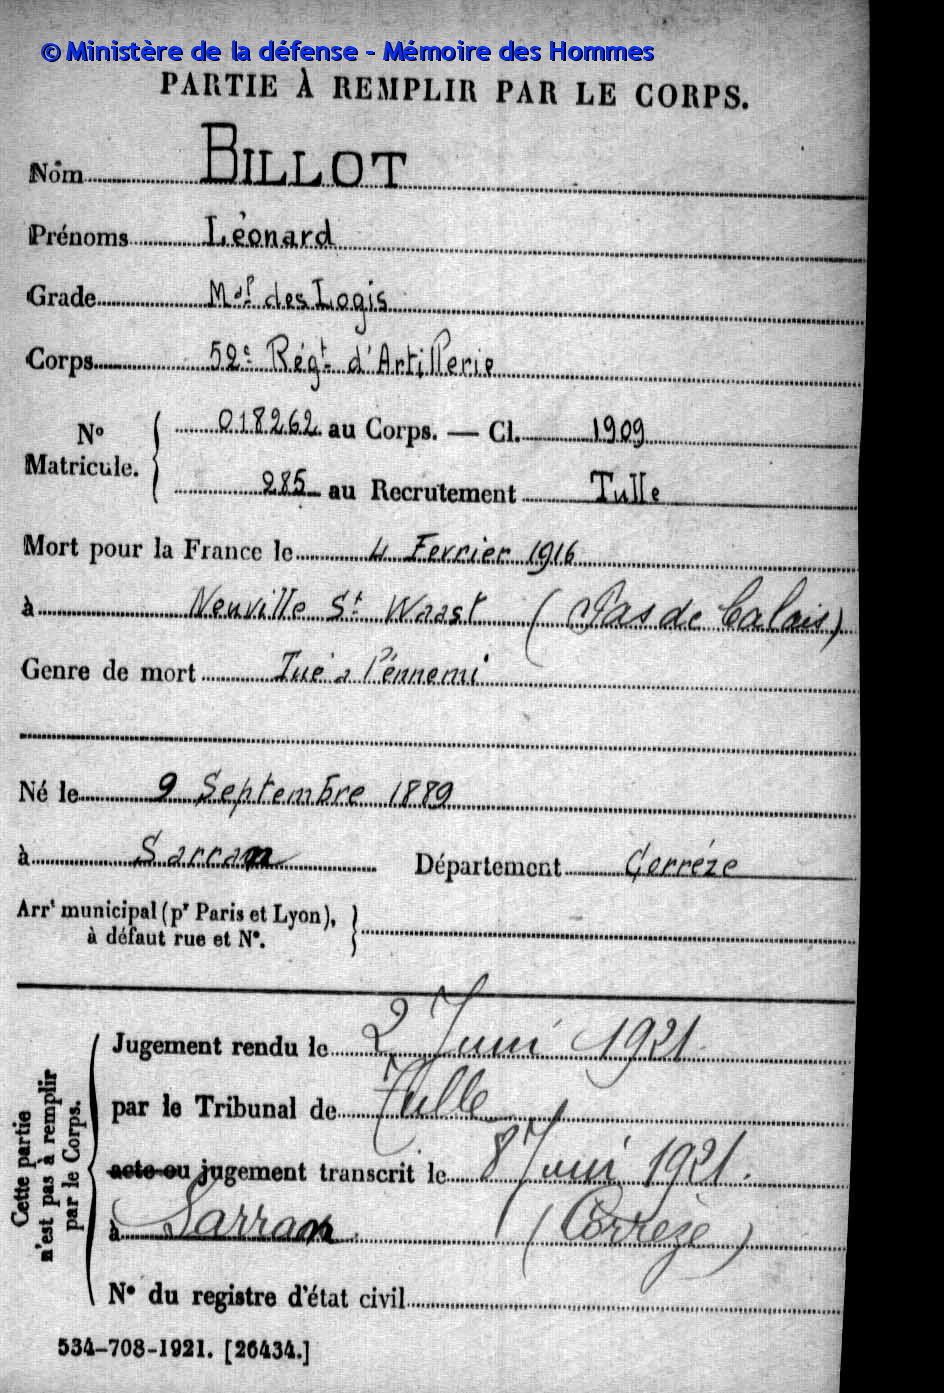 © Ministère de la défense - Mémoire des Hommes
PARTIE À REMPLIR PAR LE CORPS.
Nom BILLOT
Prénoms Léonard
Grade Mal des Logis
Corps 52e Régt d'Artillerie
No Matricule. 018262 au Corps. — Cl. 1909
285 au Recrutement Tulle
Mort pour la France le 4 Fevrier 1916
à Neuville St Waast (Pas de Calais)
Genre de mort Tué a l'énnemi
Né le 9 Septembre 1889
à Sarran Département Corréze
Arrt municipal (pr Paris et Lyon),
à défaut rue et No.
Cette partie
n'est pas à remplir
par le Corps.
Jugement rendu le 2 Juin 1921
par le Tribunal de Tulle
acte ou jugement transcrit le 8 Juin 1921.
à Sarran (Corrèze)
No du registre d'état civil
534-708-1921. [26434.]